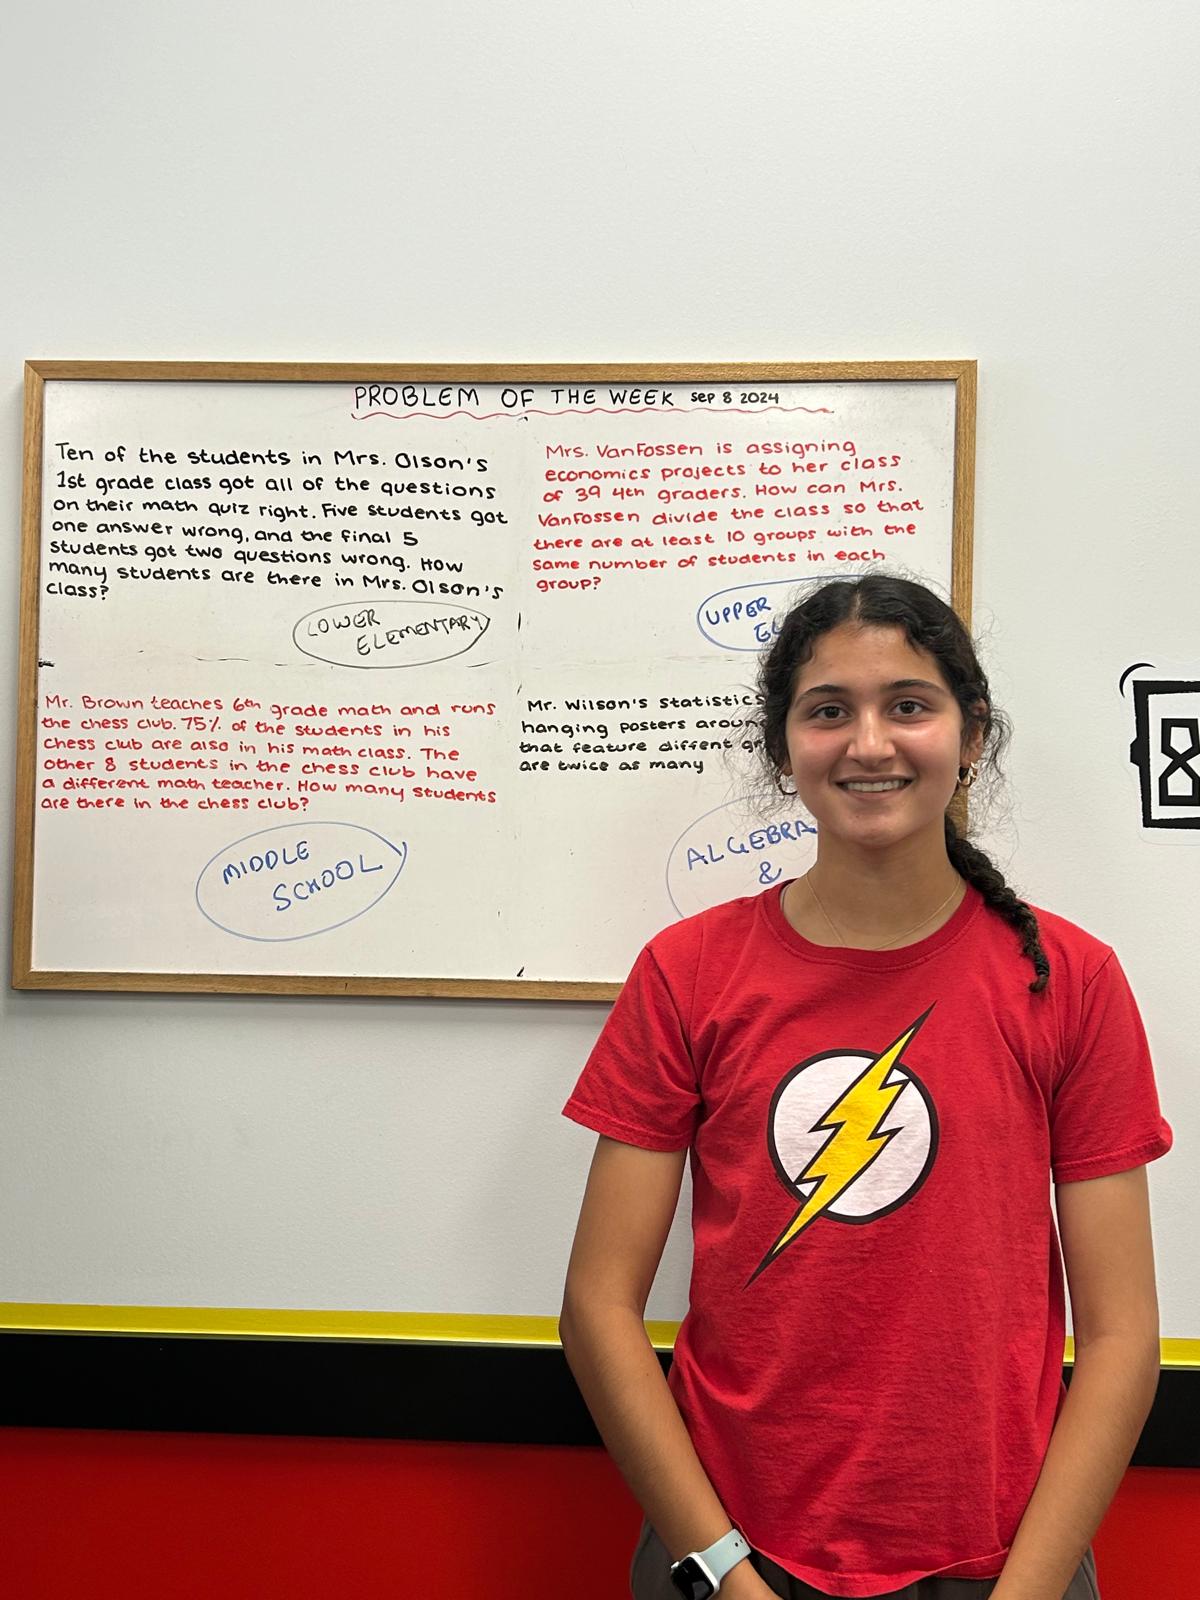 PROBLEM OF THE WEEK SEP 8 2024
Ten of the students in Mrs. Olson's
1st grade class got all of the questions
on their math quiz right. Five students got
one answer wrong, and the final 5
students got two questions wrong. How
many students are there in Mrs. Olson's
class?
LOWER
ELEMENTARY
Mrs. VanFossen is assigning
economics projects to her class
of 39 4th graders. How can Mrs.
VanFossen divide the class so that
there are at least 10 groups with the
same number of students in each
group?
UPPER
EL
Mr. Brown teaches 6th grade math and runs
the chess club. 75% of the students in his
chess club are also in his math class. The
other 8 students in the chess club have
a different math teacher. How many students
are there in the chess club?
MIDDLE
SCHOOL
Mr. Wilson's Statistics
hanging posters aroun
that feature diffent gr
are twice as many
ALGEBRA
&